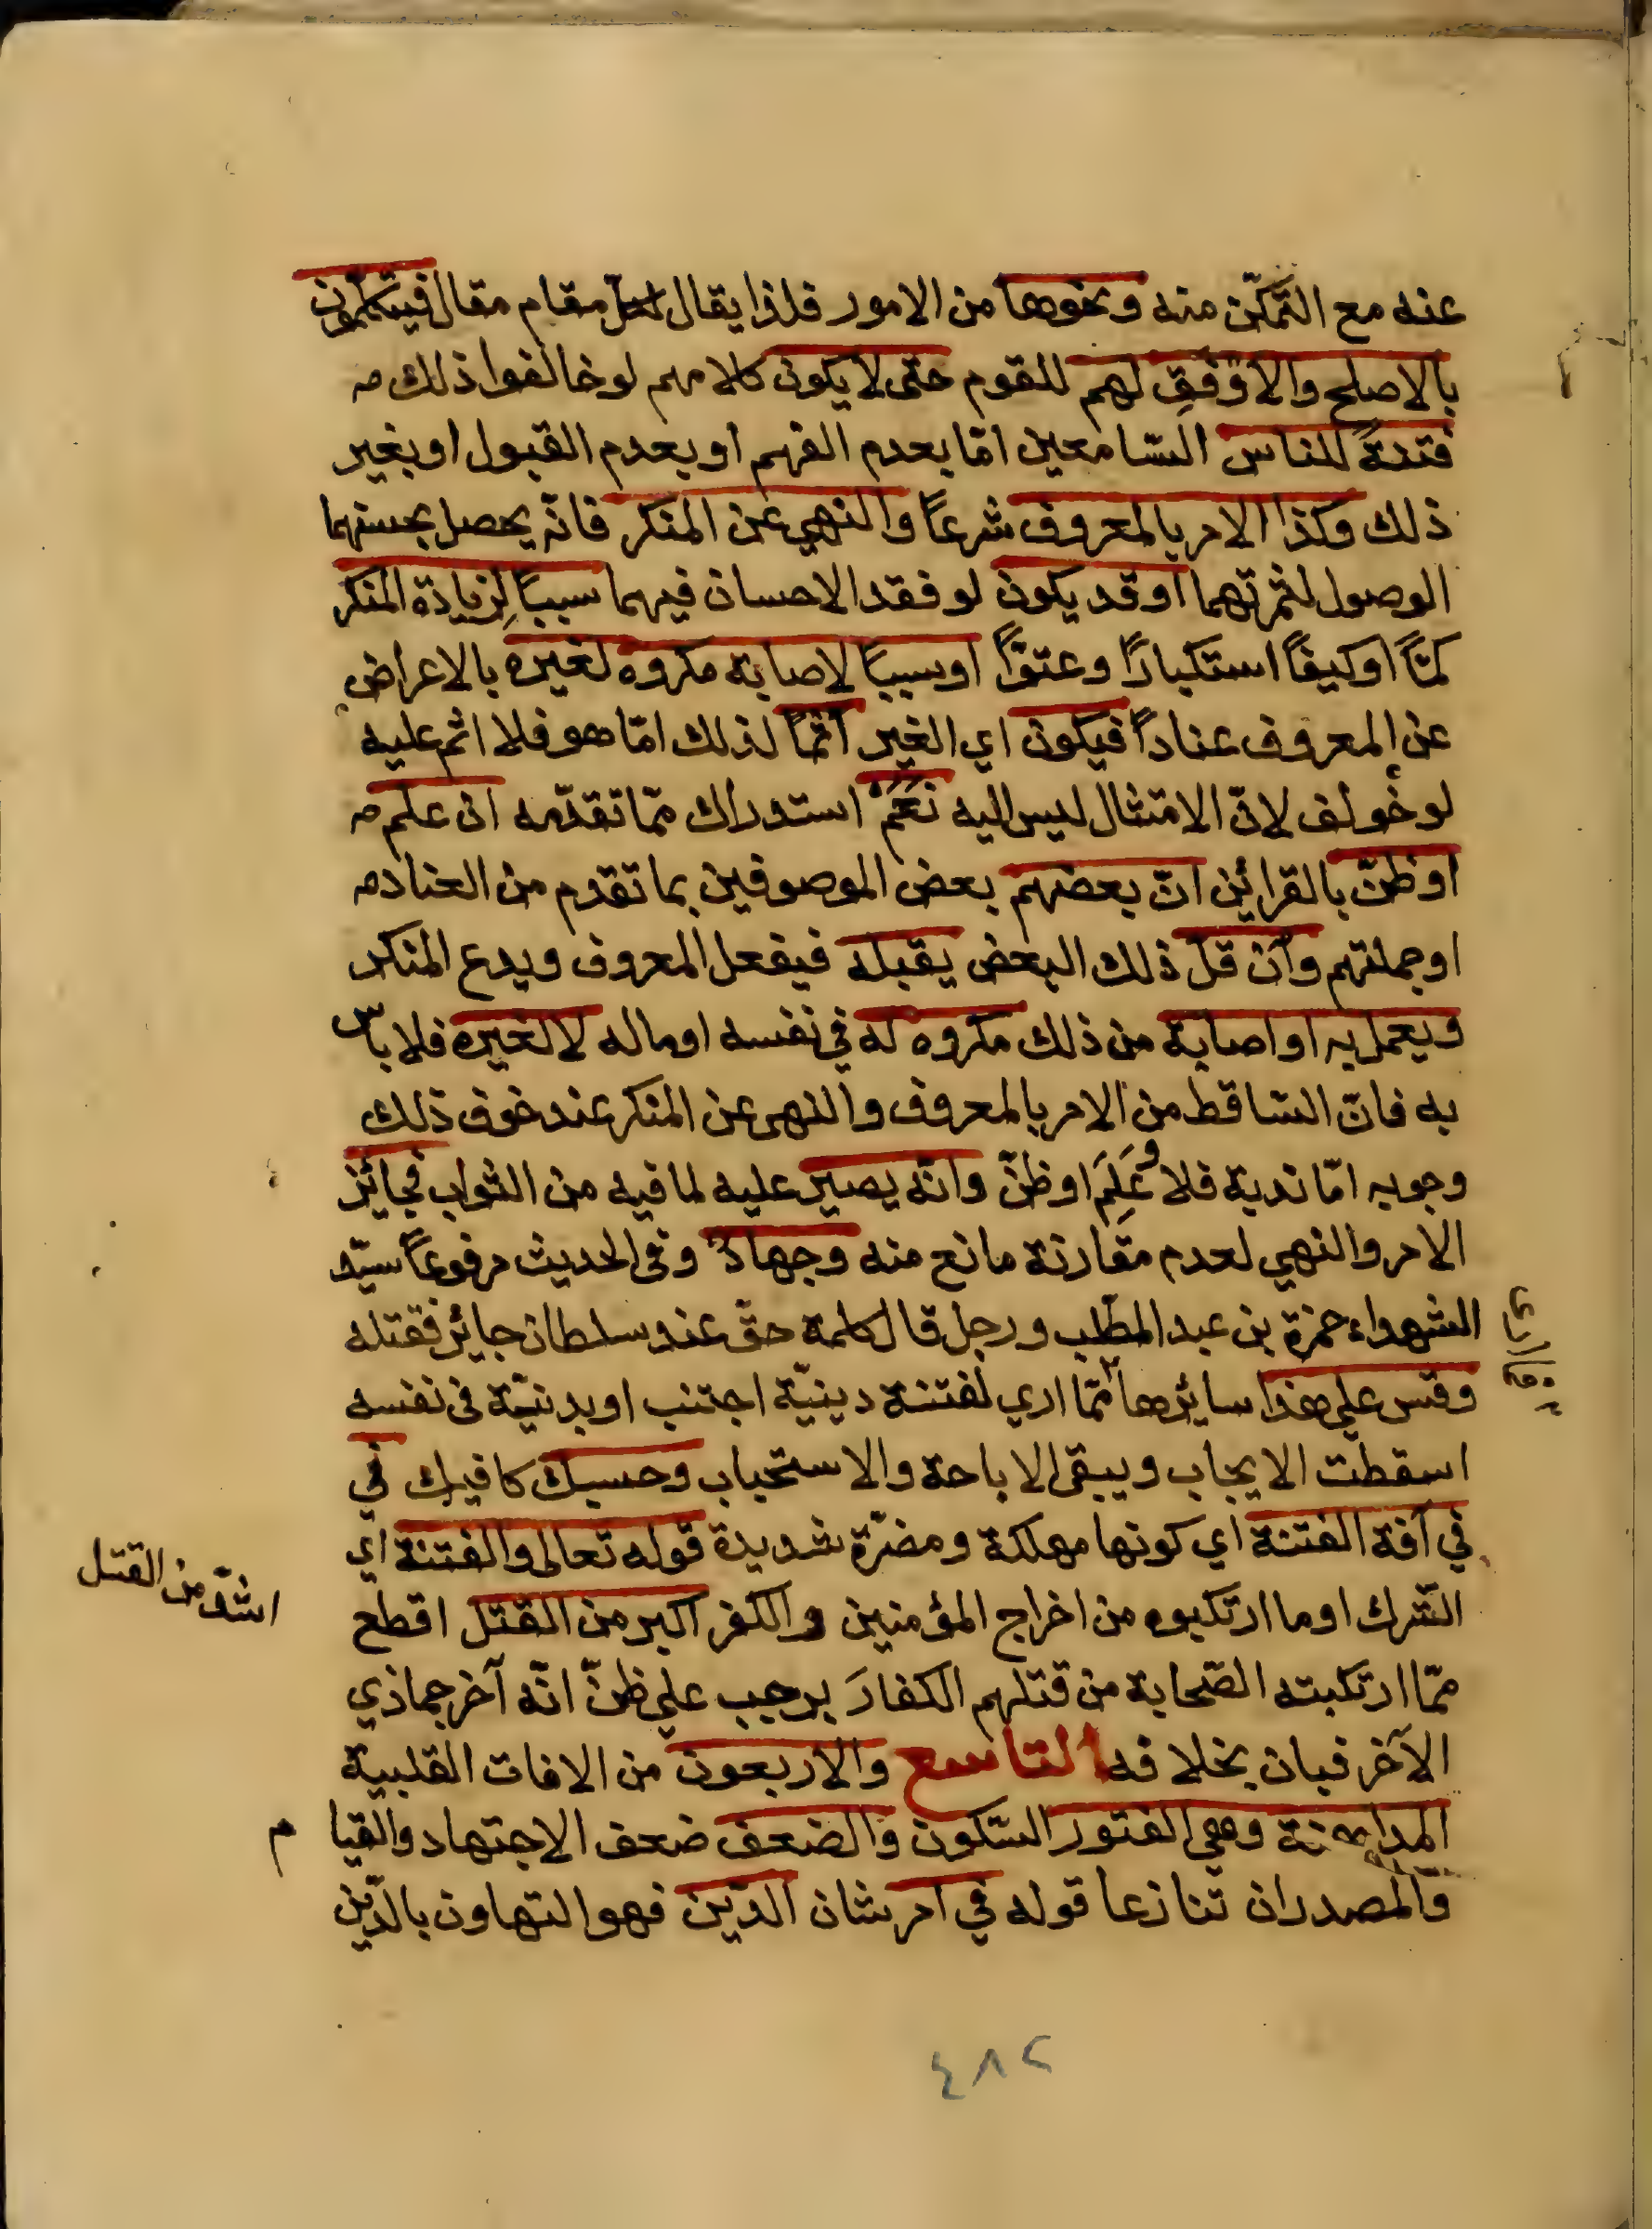 عنه مع التمكّن منه ونحوها من الامور فلذا يقال لكل مقام مقال فيتكلمون
بالاصلح والاوفق لهم للقوم حتى لا يكون كلامهم لو خالفوا ذلك
فتنةً للناس السّامعين امّا بعدم الفهم او بعدم القبول او بغير
ذلك وكذا الامر بالمعروف شرعاً والنهي عن المنكر فانّه يحصل بحسنهما
الوصول لثمرتهما او قد يكون لو فقد الاحسان فيهما سبباً لِزيادة المنكر
كمّاً او كيفاً استكباراً وعتوّاً او سببا لاصابة مكروه لغيره بالاعراض
عن المعروف عناداً فيكون اي الغير آثماً لذلك امّا هو فلا اثم عليه
لو خُولف لانّ الامتثال ليس اليه نَعَمْ استدراك ممّا تقدّمه ان علم
او ظنّ بالقرائن انّ بعضهم بعض الموصوفين بما تقدم من العناد
او جملتهم وان قلّ ذلك البعض يقبله فيفعل المعروف ويدع المنكر
ويعمل به او اصابة من ذلك مكروه له في نفسه او ماله لا لغيره فلا باس
به فانّ السّاقط من الامر بالمعروف والنهي عن المنكر عند خوف ذلك
وجوبه امّا ندبة فلا وعَلِمَ او ظنّ وانّه يصير عليه لما فيه من الثواب فجائز
الامر والنهي لعدم مقارنة مانع منه وجهادٌ وفى الحديث مرفوعاً سيّد
الشهداء حمزة بن عبد المطّلب ورجل قال كلمة حقّ عند سلطان جائر فقتله
وقس على هذا سائرها ممّا اري لفتنة دينيّة اجتنب او بدنيّة فى نفسه
اسقطت الايجاب ويبقى الاباحة والاستحباب وحسبك كافيك في
في آفة الفتنة اي كونها مهلكة ومضرّة شديدة قوله تعالى والفتنة اي
اشدّ من القتل
الشرك او ما ارتكبوه من اخراج المؤمنين والكفر اكبر من القتل اقطع
ممّا ارتكبته الصّحابة من قتلهم الكفارَ برجب على ظنّ انّه آخر جماذي
الآخر فبان بخلافه التاسع والاربعون من الافات القلبية
المداهنة وهي الفتور السّكون والضعف ضعف الاجتهاد والقيا م
والمصدران تنازعا قوله في امر شان الدّين فهو التهاون بالدّين
٤٨٢